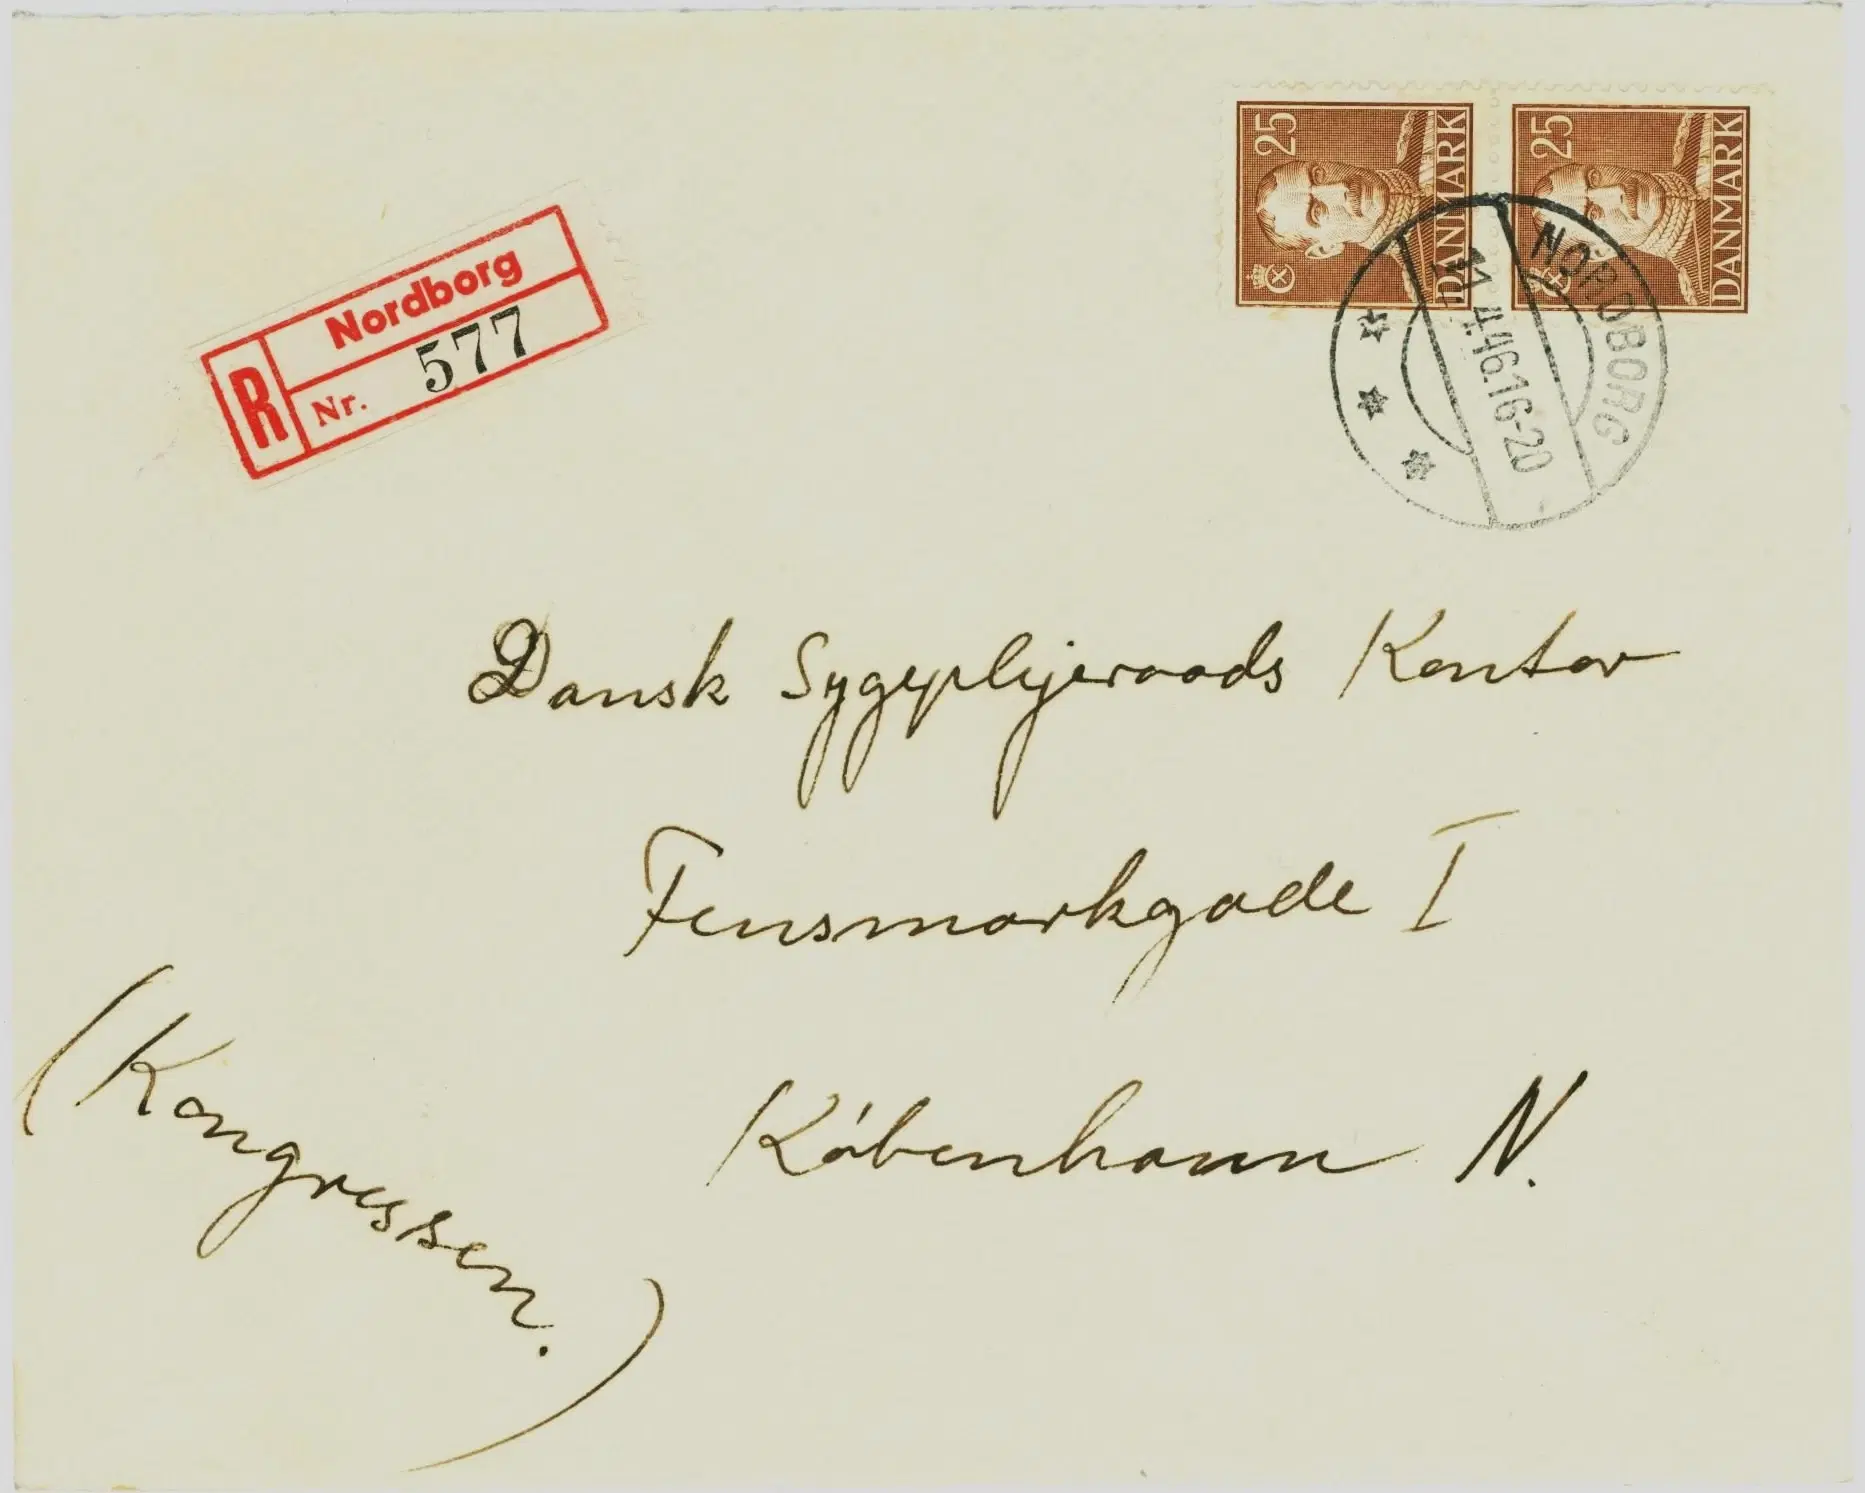 25 DANMARK
25 DANMARK
NORDBORG
11.4.46.16-20
R Nordborg
Nr. 577
Dansk Sygeplejeraads Kontor
Fensmarkgade I
København N.
(Kongressen.)